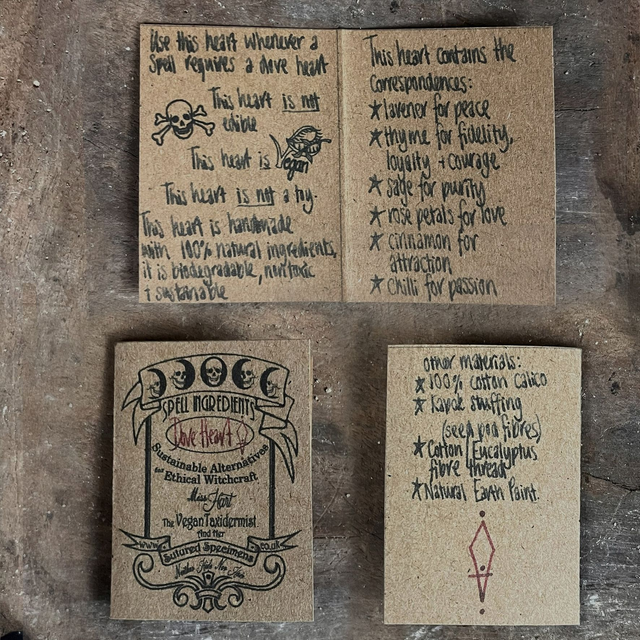 Use this heart whenever a
Spell requires a dove heart
This heart is not
edible
This heart is Vegan
This heart is not a toy.
This heart is handmade
with 100% natural ingredients,
it is biodegradable, nontoxic
+ sustainable
This heart contains the
correspondences:
★ lavener for peace
★ thyme for fidelity,
loyalty + courage
★ sage for purity
★ rose petals for love
★ cinnamon for
attraction
★ chilli for passion
SPELL INGREDIENTS
Dove Heart
Sustainable Alternatives
for Ethical Witchcraft
Miss Hart
The Vegan Taxidermist
And Her
www. Sutured Specimens .co.uk
other materials:
★ 100% cotton calico
★ Kapok stuffing
(seed pod fibres)
★ Cotton/Eucalyptus
fibre thread
★ Natural Earth Paint.